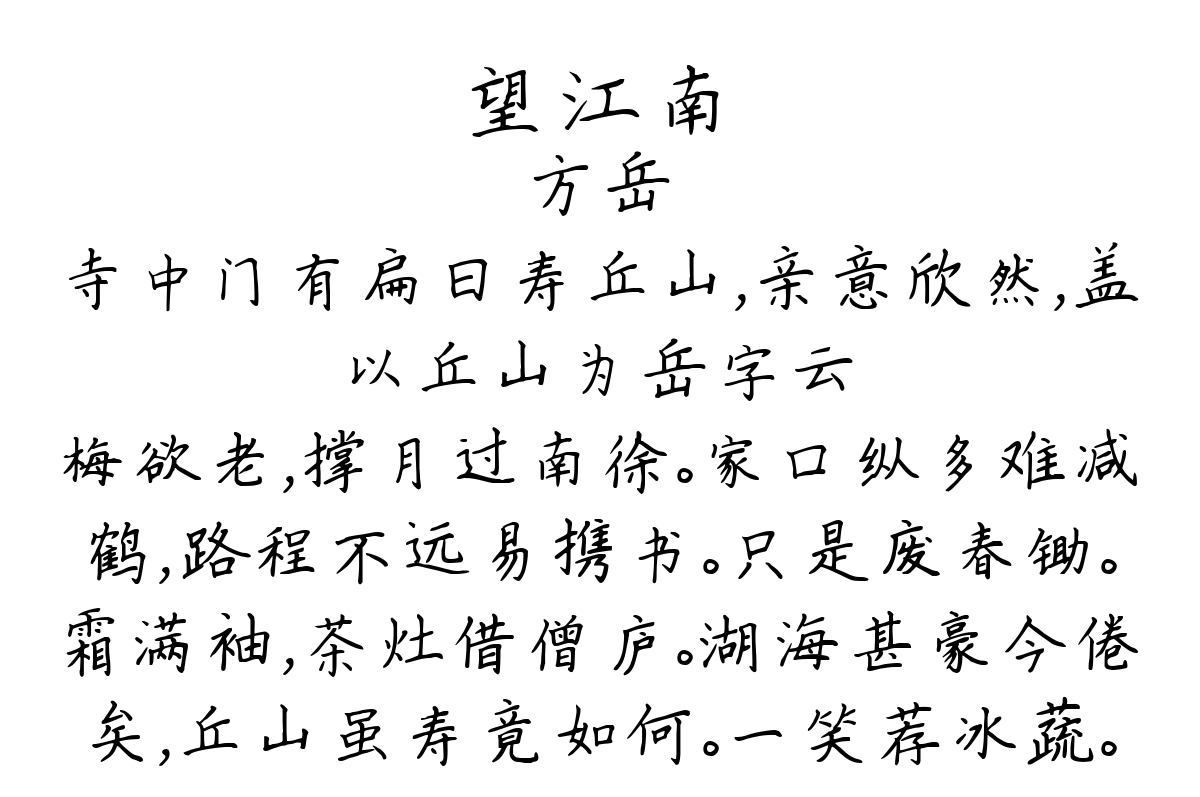 望江南
方岳
寺中门有扁曰寿丘山,亲意欣然,盖
以丘山为岳字云
梅欲老,撑月过南徐。家口纵多难减
鹤,路程不远易携书。只是废春锄。
霜满袖,茶灶借僧庐。湖海甚豪今倦
矣,丘山虽寿竟如何。一笑荐冰蔬。